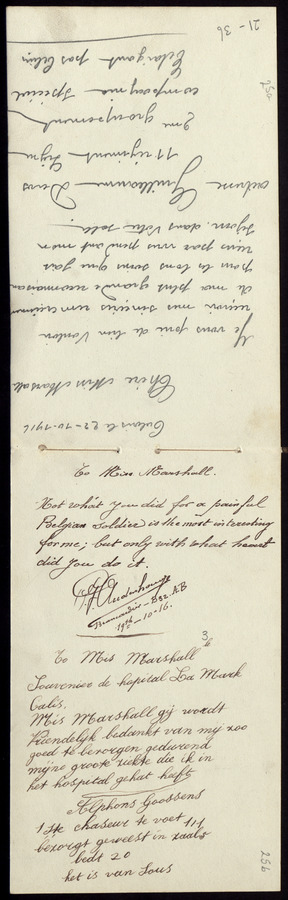 21 - 36
Calais le 22-10-1916
Chère Miss Marshall
Je vous prie de bien Vouloir
recevoir mes sincères remerciements
de ma plus grande reconnaissance
pour les bons soins que
vous pendant mon
séjour dans Votre salle
Guillaume
11 régiment ligne
2me groupement
compagnie spécial
pas loin
To Miss Marshall.
Not what you did for a painful
Belgian soldier is the most interesting
for me; but only with what heart
did you do it.
19th-10-16.
3/
To Mis Marshall
Souvenier de hopital La Mark
Calis.
Mis Marshall gij wordt
Vriendelyk bedankt van my zoo
goed te bezorgen gedurend
mijne groote ziekte die ik in
het hospital gehat heft
Alphons Goossens
1ste chaseur te voet 1/1
bezorgt geweest in zaal
bedt 20
het is van Sous
256